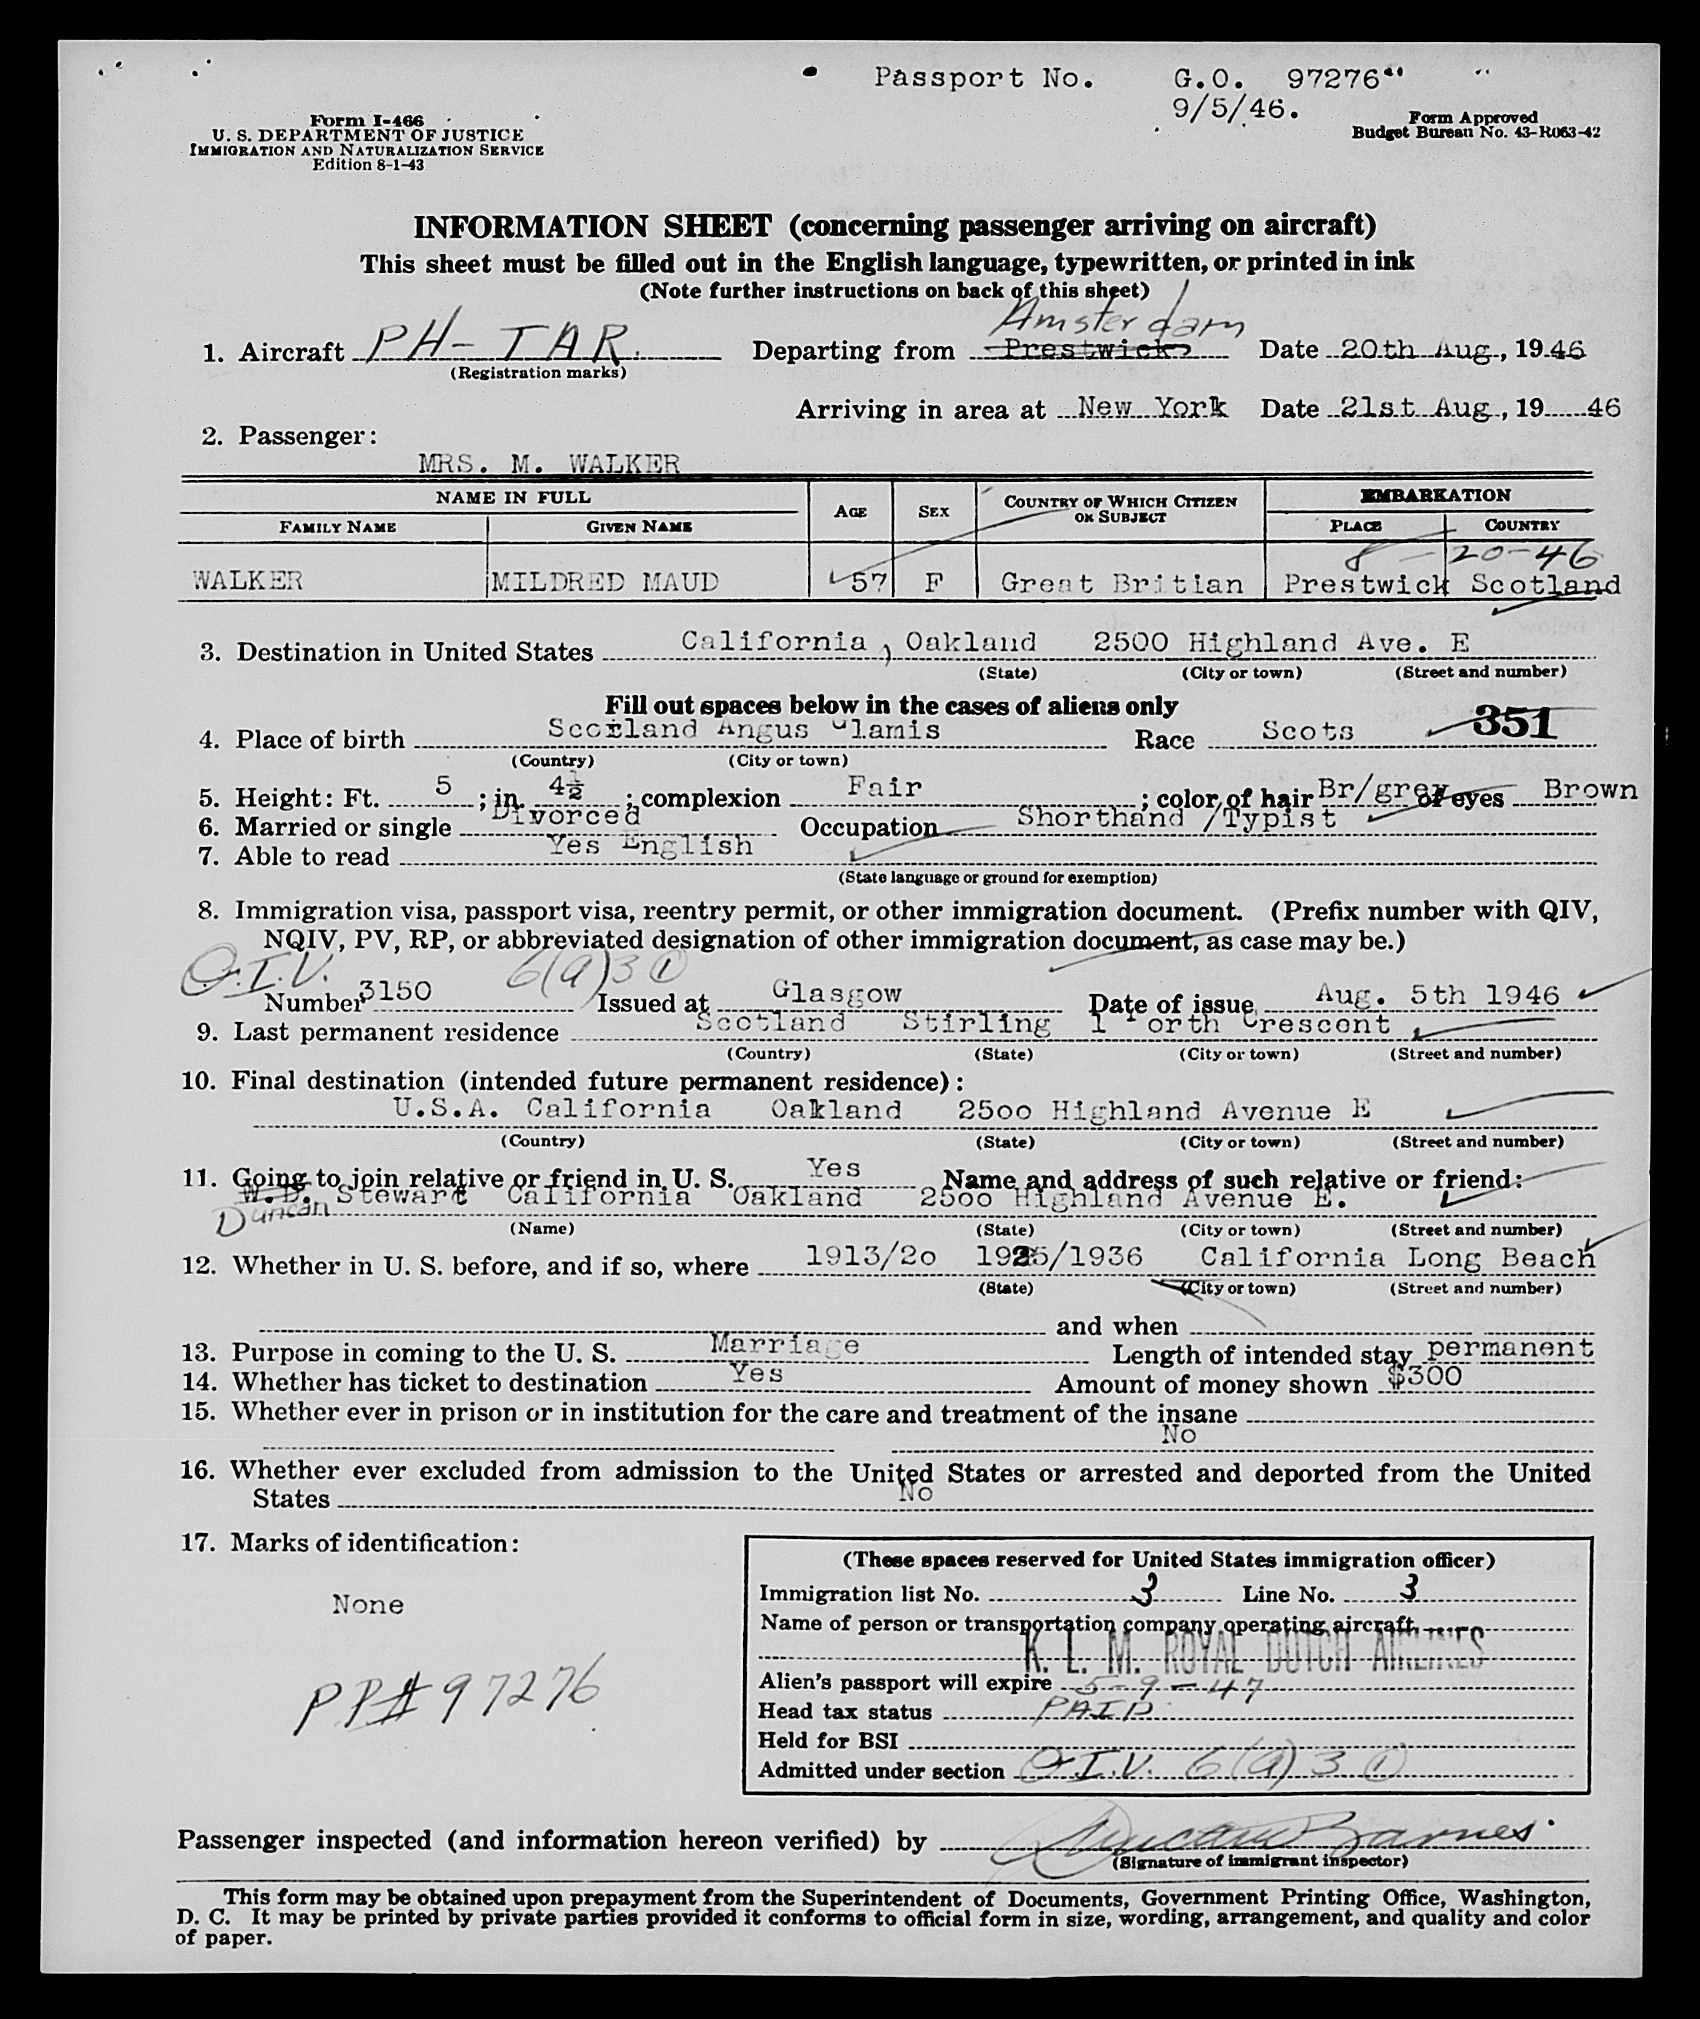 Passport No. G.O. 97276"
9/5/46.
Form I-466
U. S. DEPARTMENT OF JUSTICE
IMMIGRATION AND NATURALIZATION SERVICE
Edition 8-1-43
Form Approved
Budget Bureau No. 43-R063-42
INFORMATION SHEET (concerning passenger arriving on aircraft)
This sheet must be filled out in the English language, typewritten, or printed in ink
(Note further instructions on back of this sheet)
Amsterdam
1. Aircraft PH-TAR. Departing from Prestwick Date 20th Aug., 19 46
(Registration marks)
Arriving in area at New York Date 21st Aug., 19 46
2. Passenger:
MRS. M. WALKER
NAME IN FULL AGE SEX COUNTRY OF WHICH CITIZEN OR SUBJECT EMBARKATION
FAMILY NAME GIVEN NAME PLACE COUNTRY
8-20-46
WALKER MILDRED MAUD 57 F Great Britian Prestwick Scotland
3. Destination in United States California, Oakland 2500 Highland Ave. E
(State) (City or town) (Street and number)
Fill out spaces below in the cases of aliens only
4. Place of birth Scotland Angus Glamis Race Scots 351
(Country) (City or town)
5. Height: Ft. 5 ; in. 4½ ; complexion Fair ; color of hair Br/grey of eyes Brown
6. Married or single Divorced Occupation Shorthand /Typist
7. Able to read Yes English
(State language or ground for exemption)
8. Immigration visa, passport visa, reentry permit, or other immigration document. (Prefix number with QIV,
NQIV, PV, RP, or abbreviated designation of other immigration document, as case may be.)
Q.I.V. 6(a)3 ①
Number 3150 Issued at Glasgow Date of issue Aug. 5th 1946
9. Last permanent residence Scotland Stirling 1 Forth Crescent
(Country) (State) (City or town) (Street and number)
10. Final destination (intended future permanent residence):
U.S.A. California Oakland 25oo Highland Avenue E
(Country) (State) (City or town) (Street and number)
11. Going to join relative or friend in U. S. Yes Name and address of such relative or friend:
W.D. Stewart California Oakland 25oo Highland Avenue E.
Duncan
(Name) (State) (City or town) (Street and number)
12. Whether in U. S. before, and if so, where 1913/2o 1925/1936 California Long Beach
(State) (City or town) (Street and number)
and when
13. Purpose in coming to the U. S. Marriage Length of intended stay permanent
14. Whether has ticket to destination Yes Amount of money shown $300
15. Whether ever in prison or in institution for the care and treatment of the insane
No
16. Whether ever excluded from admission to the United States or arrested and deported from the United
States No
17. Marks of identification:
None
PP# 97276
(These spaces reserved for United States immigration officer)
Immigration list No. 3 Line No. 3
Name of person or transportation company operating aircraft
K. L. M. ROYAL DUTCH AIRLINES
Alien's passport will expire 5-9-47
Head tax status PAID
Held for BSI
Admitted under section Q.I.V. 6(a)3 ①
Passenger inspected (and information hereon verified) by Duncan Barnes
(Signature of immigrant inspector)
This form may be obtained upon prepayment from the Superintendent of Documents, Government Printing Office, Washington,
D. C. It may be printed by private parties provided it conforms to official form in size, wording, arrangement, and quality and color
of paper.